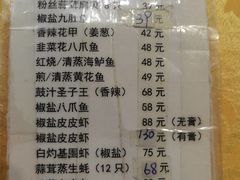 粉丝 37 元
椒盐九肚鱼 39 元
香辣花甲（姜葱） 42 元
韭菜花八爪鱼 48 元
红烧/清蒸海鲈鱼 48 元
煎/清蒸黄花鱼 49 元
鼓汁圣子王（香辣） 68 元
椒盐八爪鱼 58 元
椒盐皮皮虾 88 元（无膏）
椒盐皮皮虾 130 元（有膏）
白灼基围虾（椒盐） 75 元
蒜茸蒸生蚝（12只） 68 元